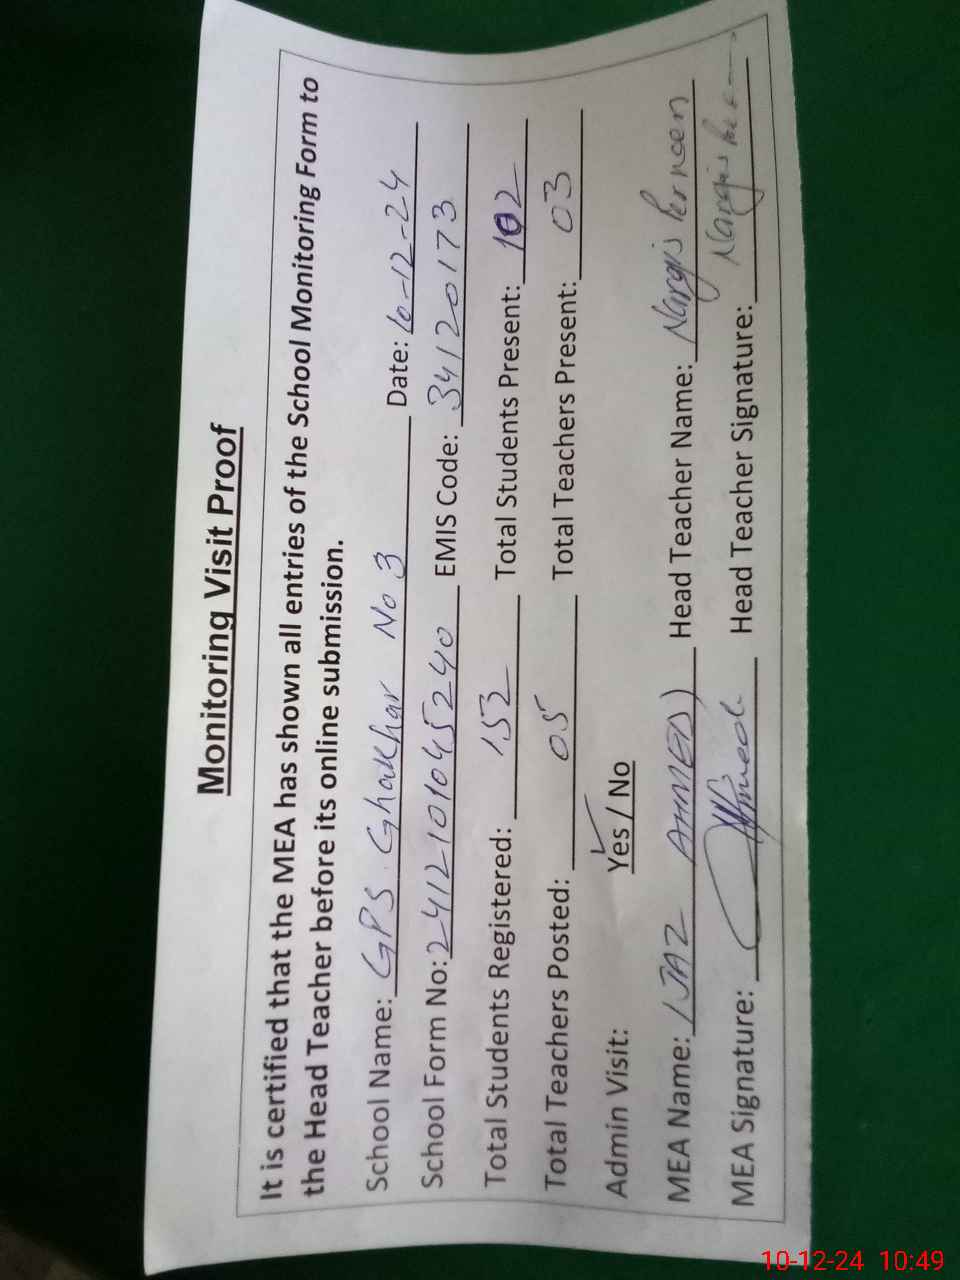 Monitoring Visit Proof
It is certified that the MEA has shown all entries of the School Monitoring Form to
the Head Teacher before its online submission.
School Name: GPS Ghakhar No 3 Date: 10-12-24
School Form No: 2412101045240 EMIS Code: 34120173
Total Students Registered: 152 Total Students Present: 102
Total Teachers Posted: 05 Total Teachers Present: 03
Admin Visit: Yes / No
MEA Name: IJAZ AHMED Head Teacher Name: Nargis Perneen
MEA Signature: Ahmed Head Teacher Signature: Nargis
10-12-24 10:49